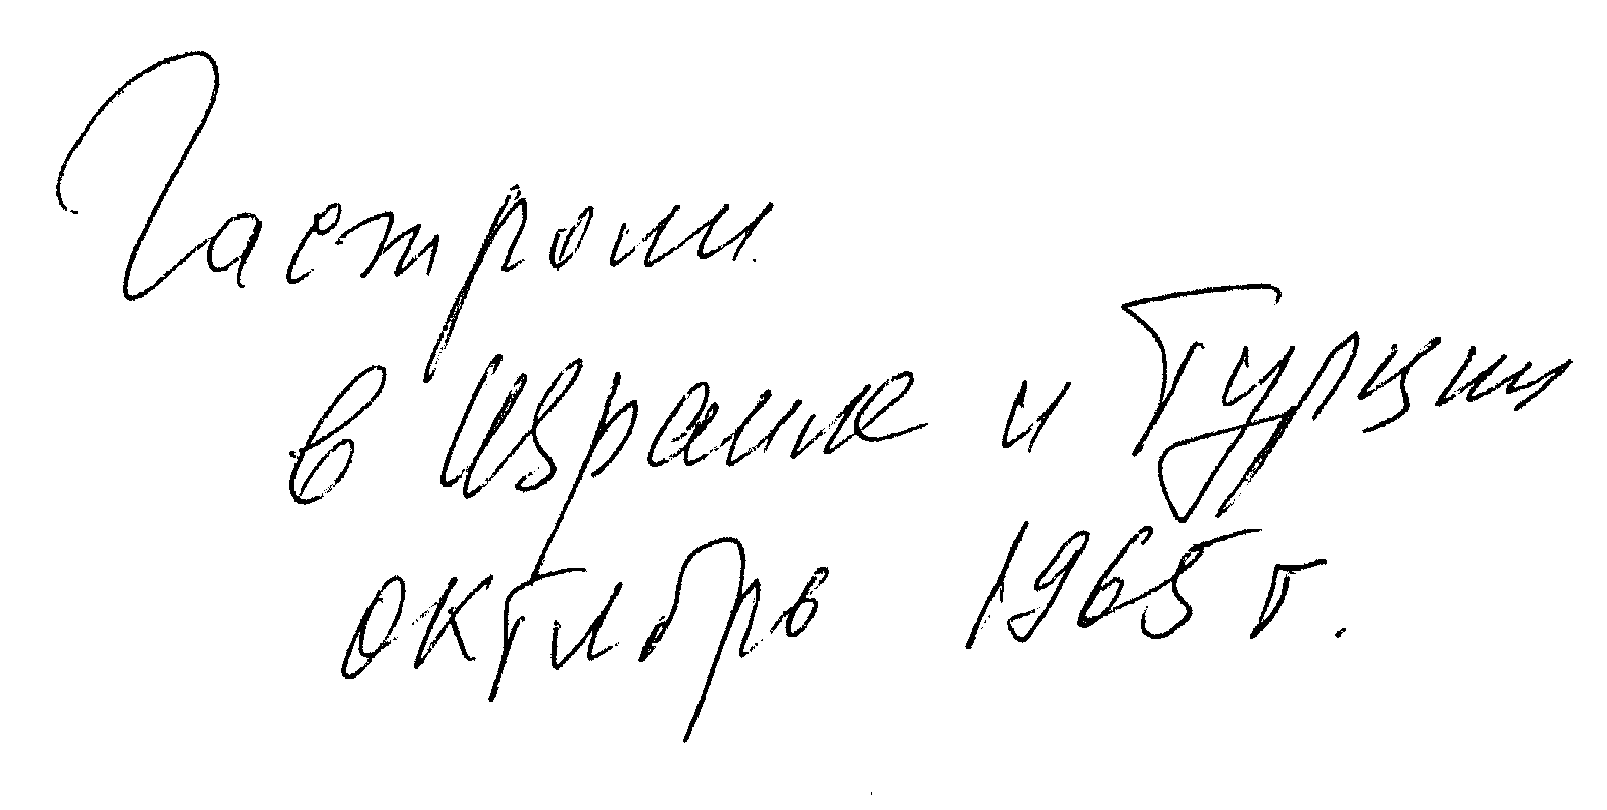 Гастроли
в Израиле и Турции
октябрь 1965 г.